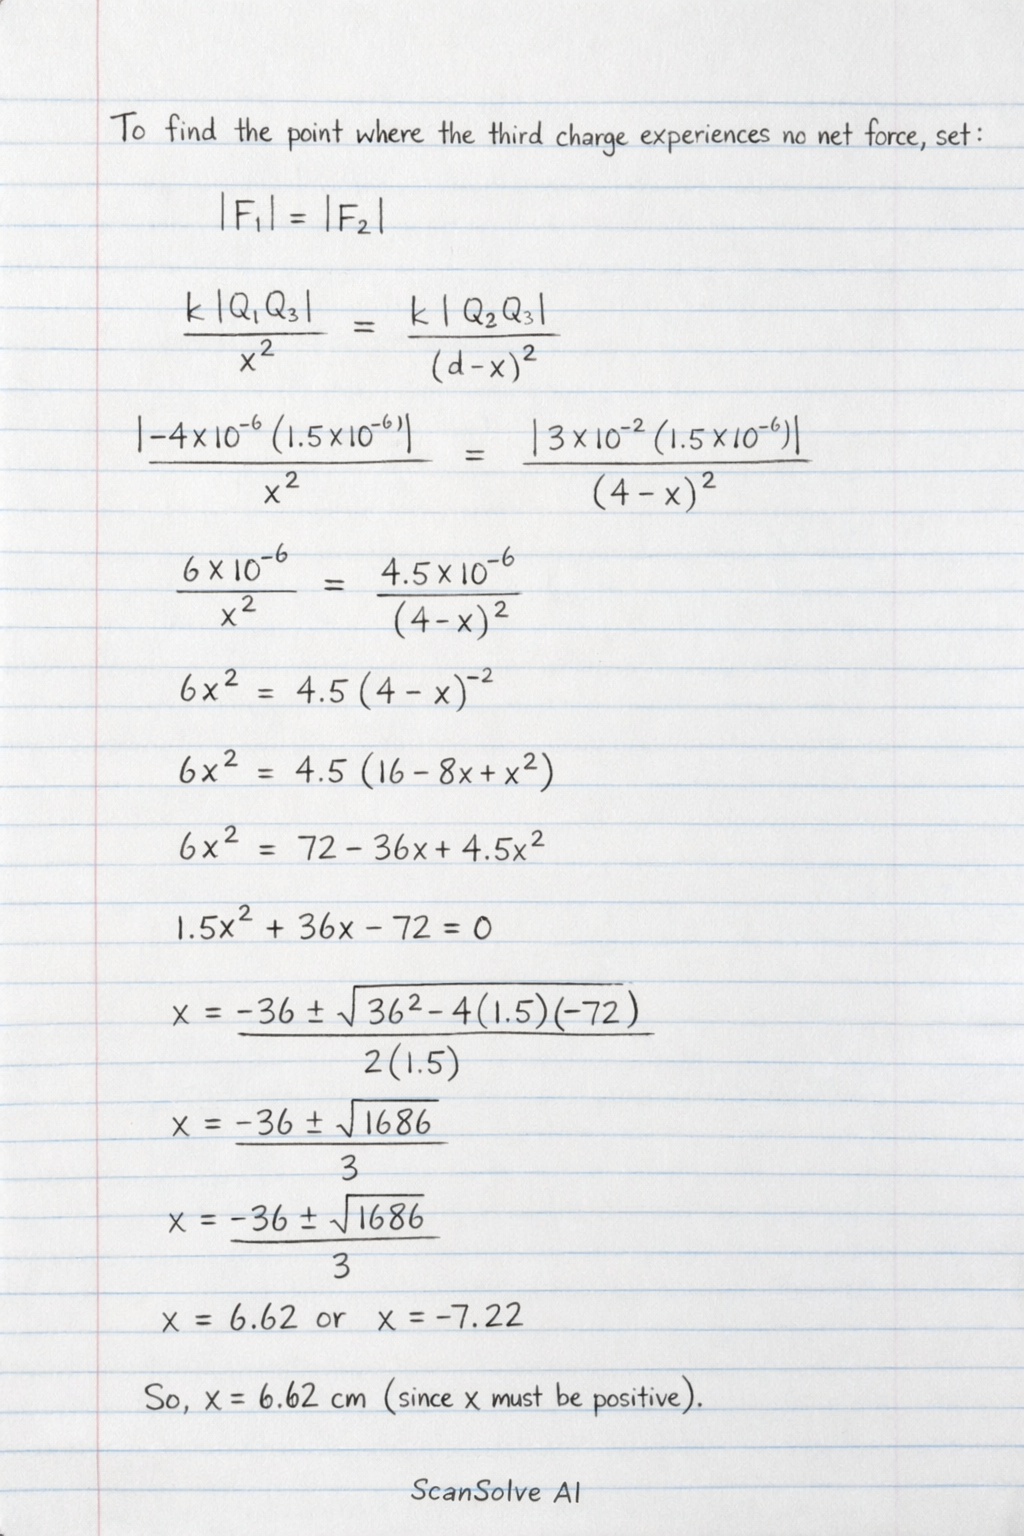 To find the point where the third charge experiences no net force, set:
|F₁| = |F₂|
k |Q₁Q₃| / x² = k | Q₂Q₃| / (d-x)²
|-4x10⁻⁶ (1.5x10⁻⁶)| / x² = |3x10⁻² (1.5x10⁻⁶)| / (4-x)²
6x10⁻⁶ / x² = 4.5x10⁻⁶ / (4-x)²
6x² = 4.5 (4-x)⁻²
6x² = 4.5 (16-8x+x²)
6x² = 72-36x+4.5x²
1.5x² + 36x - 72 = 0
x = -36 ± √36²-4(1.5)(-72) / 2(1.5)
x = -36 ± √1686 / 3
x = -36 ± √1686 / 3
x = 6.62 or x = -7.22
So, x = 6.62 cm (since x must be positive).
ScanSolve AI